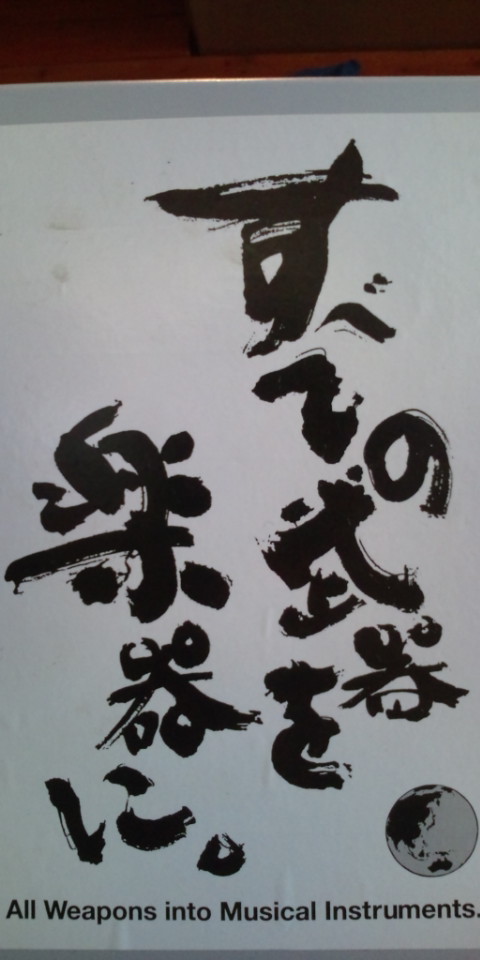 すべての武器を
楽器に。
All Weapons into Musical Instruments.